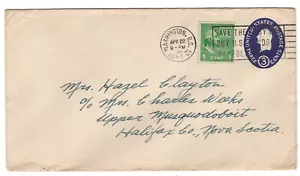 WASHINGTON, D.C.
APR 22
9 - PM
SAVE THE
BUY U.S.
1 CENT
UNITED STATES POSTAGE
3
Mrs. Hazel Clayton
c/o Mrs. Charles Weeks
Upper Musquodoboit
Halifax Co., Nova Scotia.